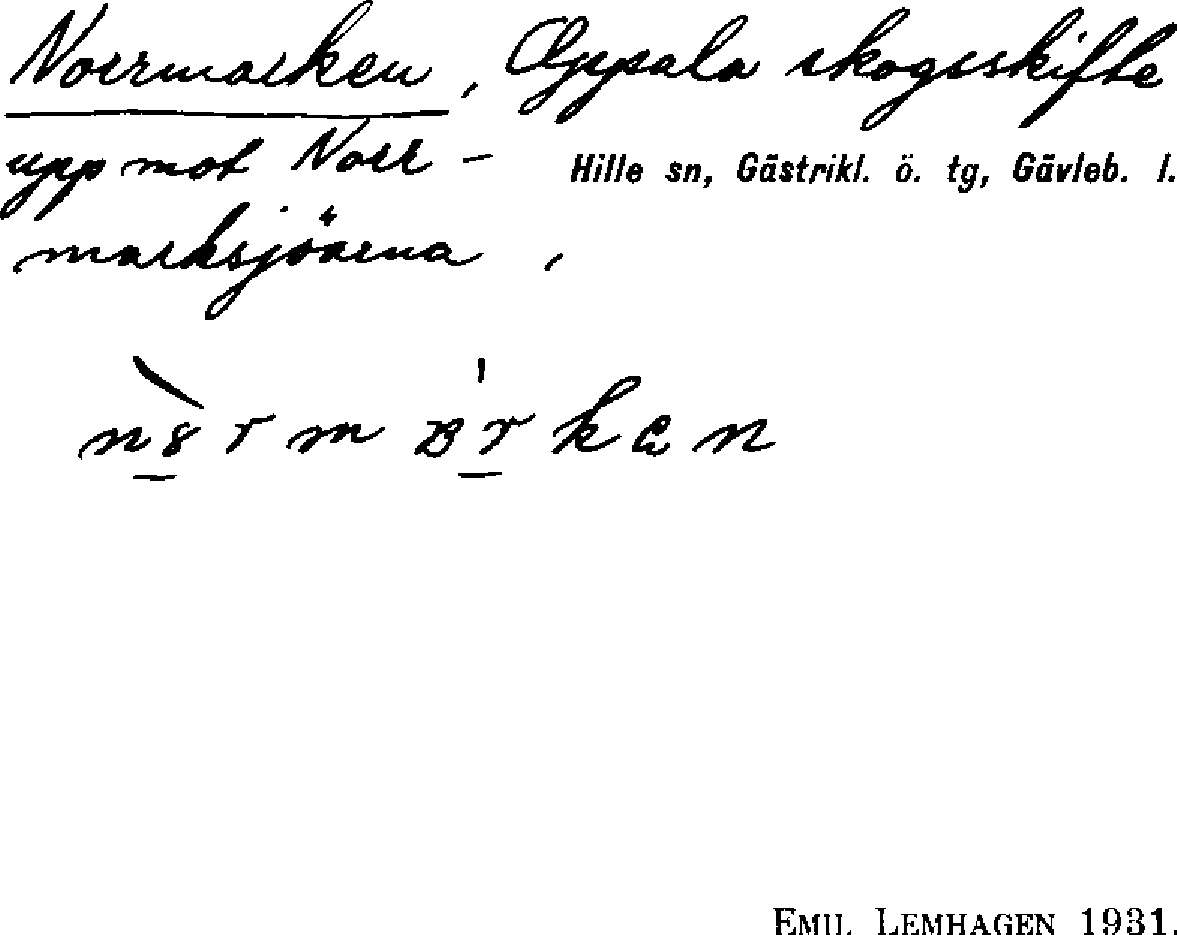 Norrmarken, Oppala skogsskifte
upp mot Norr - Hille sn, Gästrikl. ö. tg, Gävleb. l.
marksjöarna,
EMIL LEMHAGEN 1931.